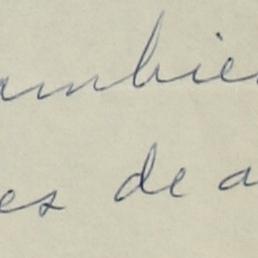 ambie
es de a